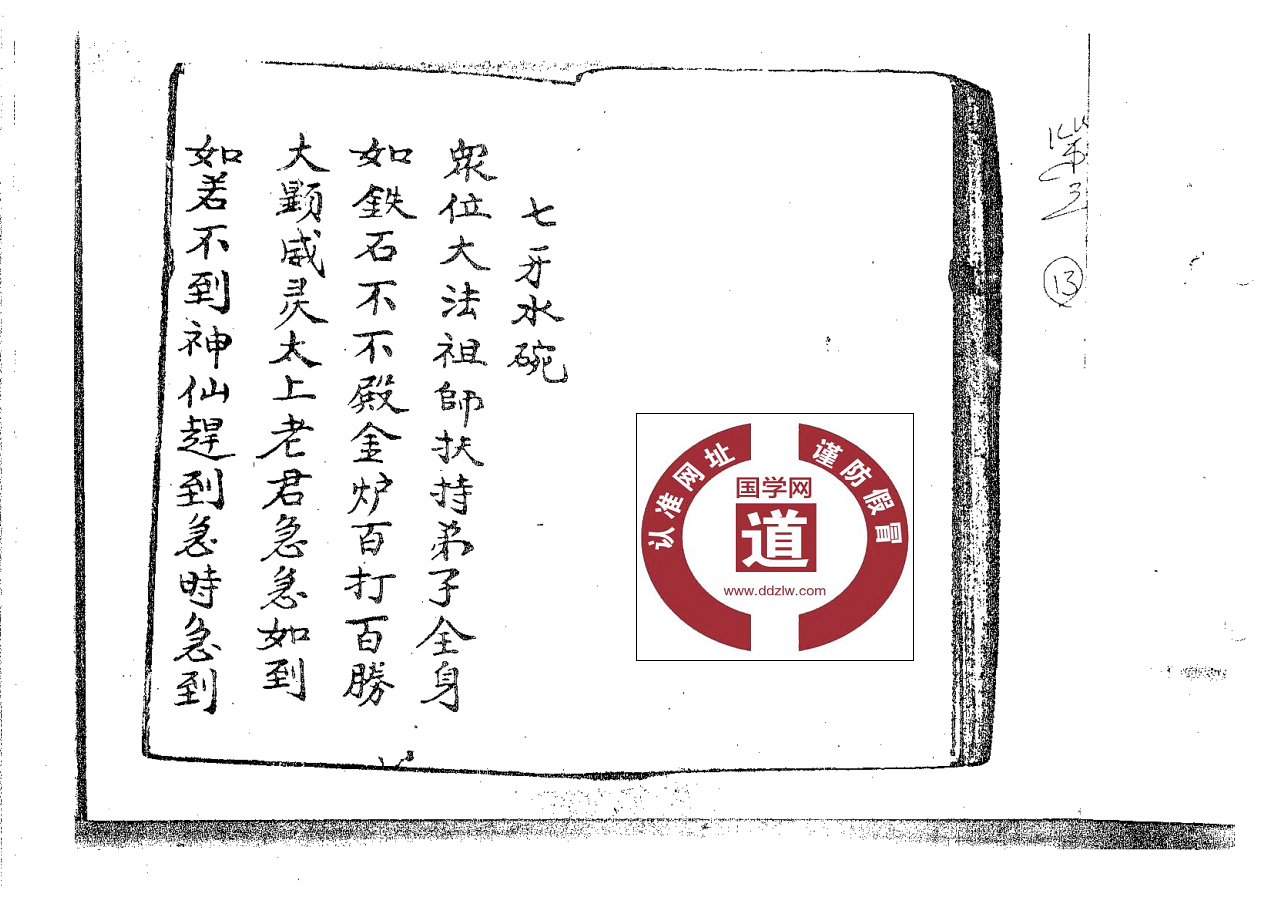 七牙水碗
眾位大法祖師扶持弟子全身
如鉄石不不殿金炉百打百勝
大顕威灵太上老君急急如到
如若不到神仙趕到急時急到
第3
13
认准网址
谨防假冒
国学网
道
www.ddzlw.com